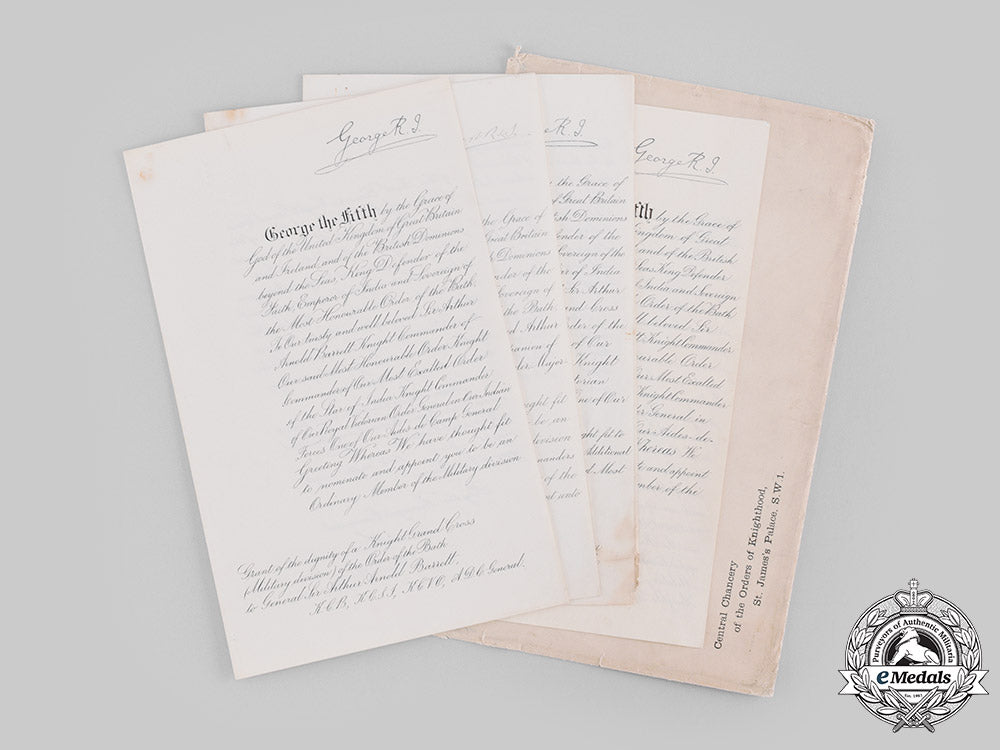 George R. I.
George the Fifth by the Grace of
God of the United Kingdom of Great Britain
and Ireland and of the British Dominions
beyond the Seas, King Defender of the
Faith Emperor of India and Sovereign of
the Most Honourable Order of the Bath
To Our trusty and well beloved Sir Arthur
Arnold Barrett Knight Commander of
Our said Most Honourable Order Knight
Commander of Our Most Exalted Order
of the Star of India Knight Commander
of Our Royal Victorian Order General in Our Indian
Forces One of Our Aides de Camp General
Greeting Whereas We have thought fit
to nominate and appoint you to be an
Ordinary Member of the Military division
Grant of the dignity of a Knight Grand Cross
(Military division) of the Order of the Bath
to General Sir Arthur Arnold Barrett.
K.C.B, K.C.S.I, K.C.V.O, A.D.C. General.
the Grace of
Great Britain
Dominions
nder of the
Sovereign of
the Bath
d Arthur
anion of
der Major
ght fit
be an
division
manders
of the
unto
rge R. I.
the Grace of
of Great Britain
tish Dominions
fender of the
Sovereign of the
r of India
Sir Arthur
and Cross
der of the
of Our
Knight
torian
One of Our
ght fit to
dditional
d. Most
George R. I.
fth by the Grace of
ingdom of Great
and of the British
Seas, King Defender
India and Sovereign
Order of the Bath
ll beloved Sir
t Knight Commander
urable Order
Our Most Exalted
Knight Commander
er General in
Our Aides-de-
Whereas We
te and appoint
mber of the
Central Chancery
of the Orders of Knighthood,
St. James's Palace, S.W.1.
Purveyors of Authentic Militaria
eMedals